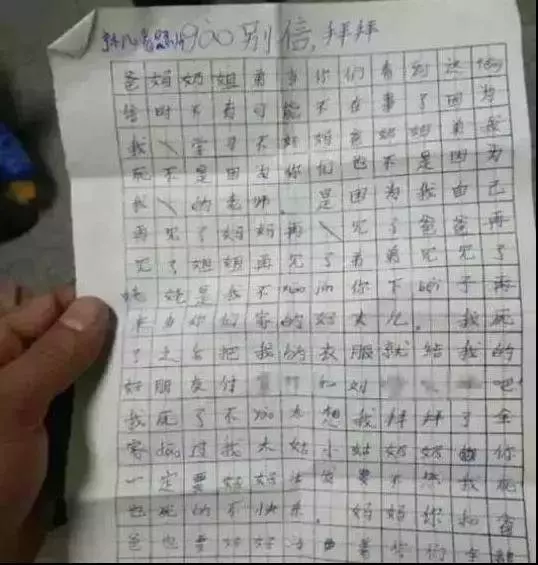 别信,拜拜
爸妈奶姐弟当你们看到这
信时不有可能不在事了因为
我\学习不好妈爸奶 弟我
死不是因为你们也不是因为
我\的老师。是因为我自己
再见了妈妈再\见了爸爸再
见了姐姐再见了弟弟见见了
是我不 你下bei子再
来当你们家的好大儿。我死
了之后把我的衣服就给我的
好朋友付 和刘 吧
我死了不yao太想我拜拜了全
家 过我大姑小姑奶奶 你
一定要好好活 要不然我死
也死的不快乐。妈妈你和爸
爸也要好好活 着你们全